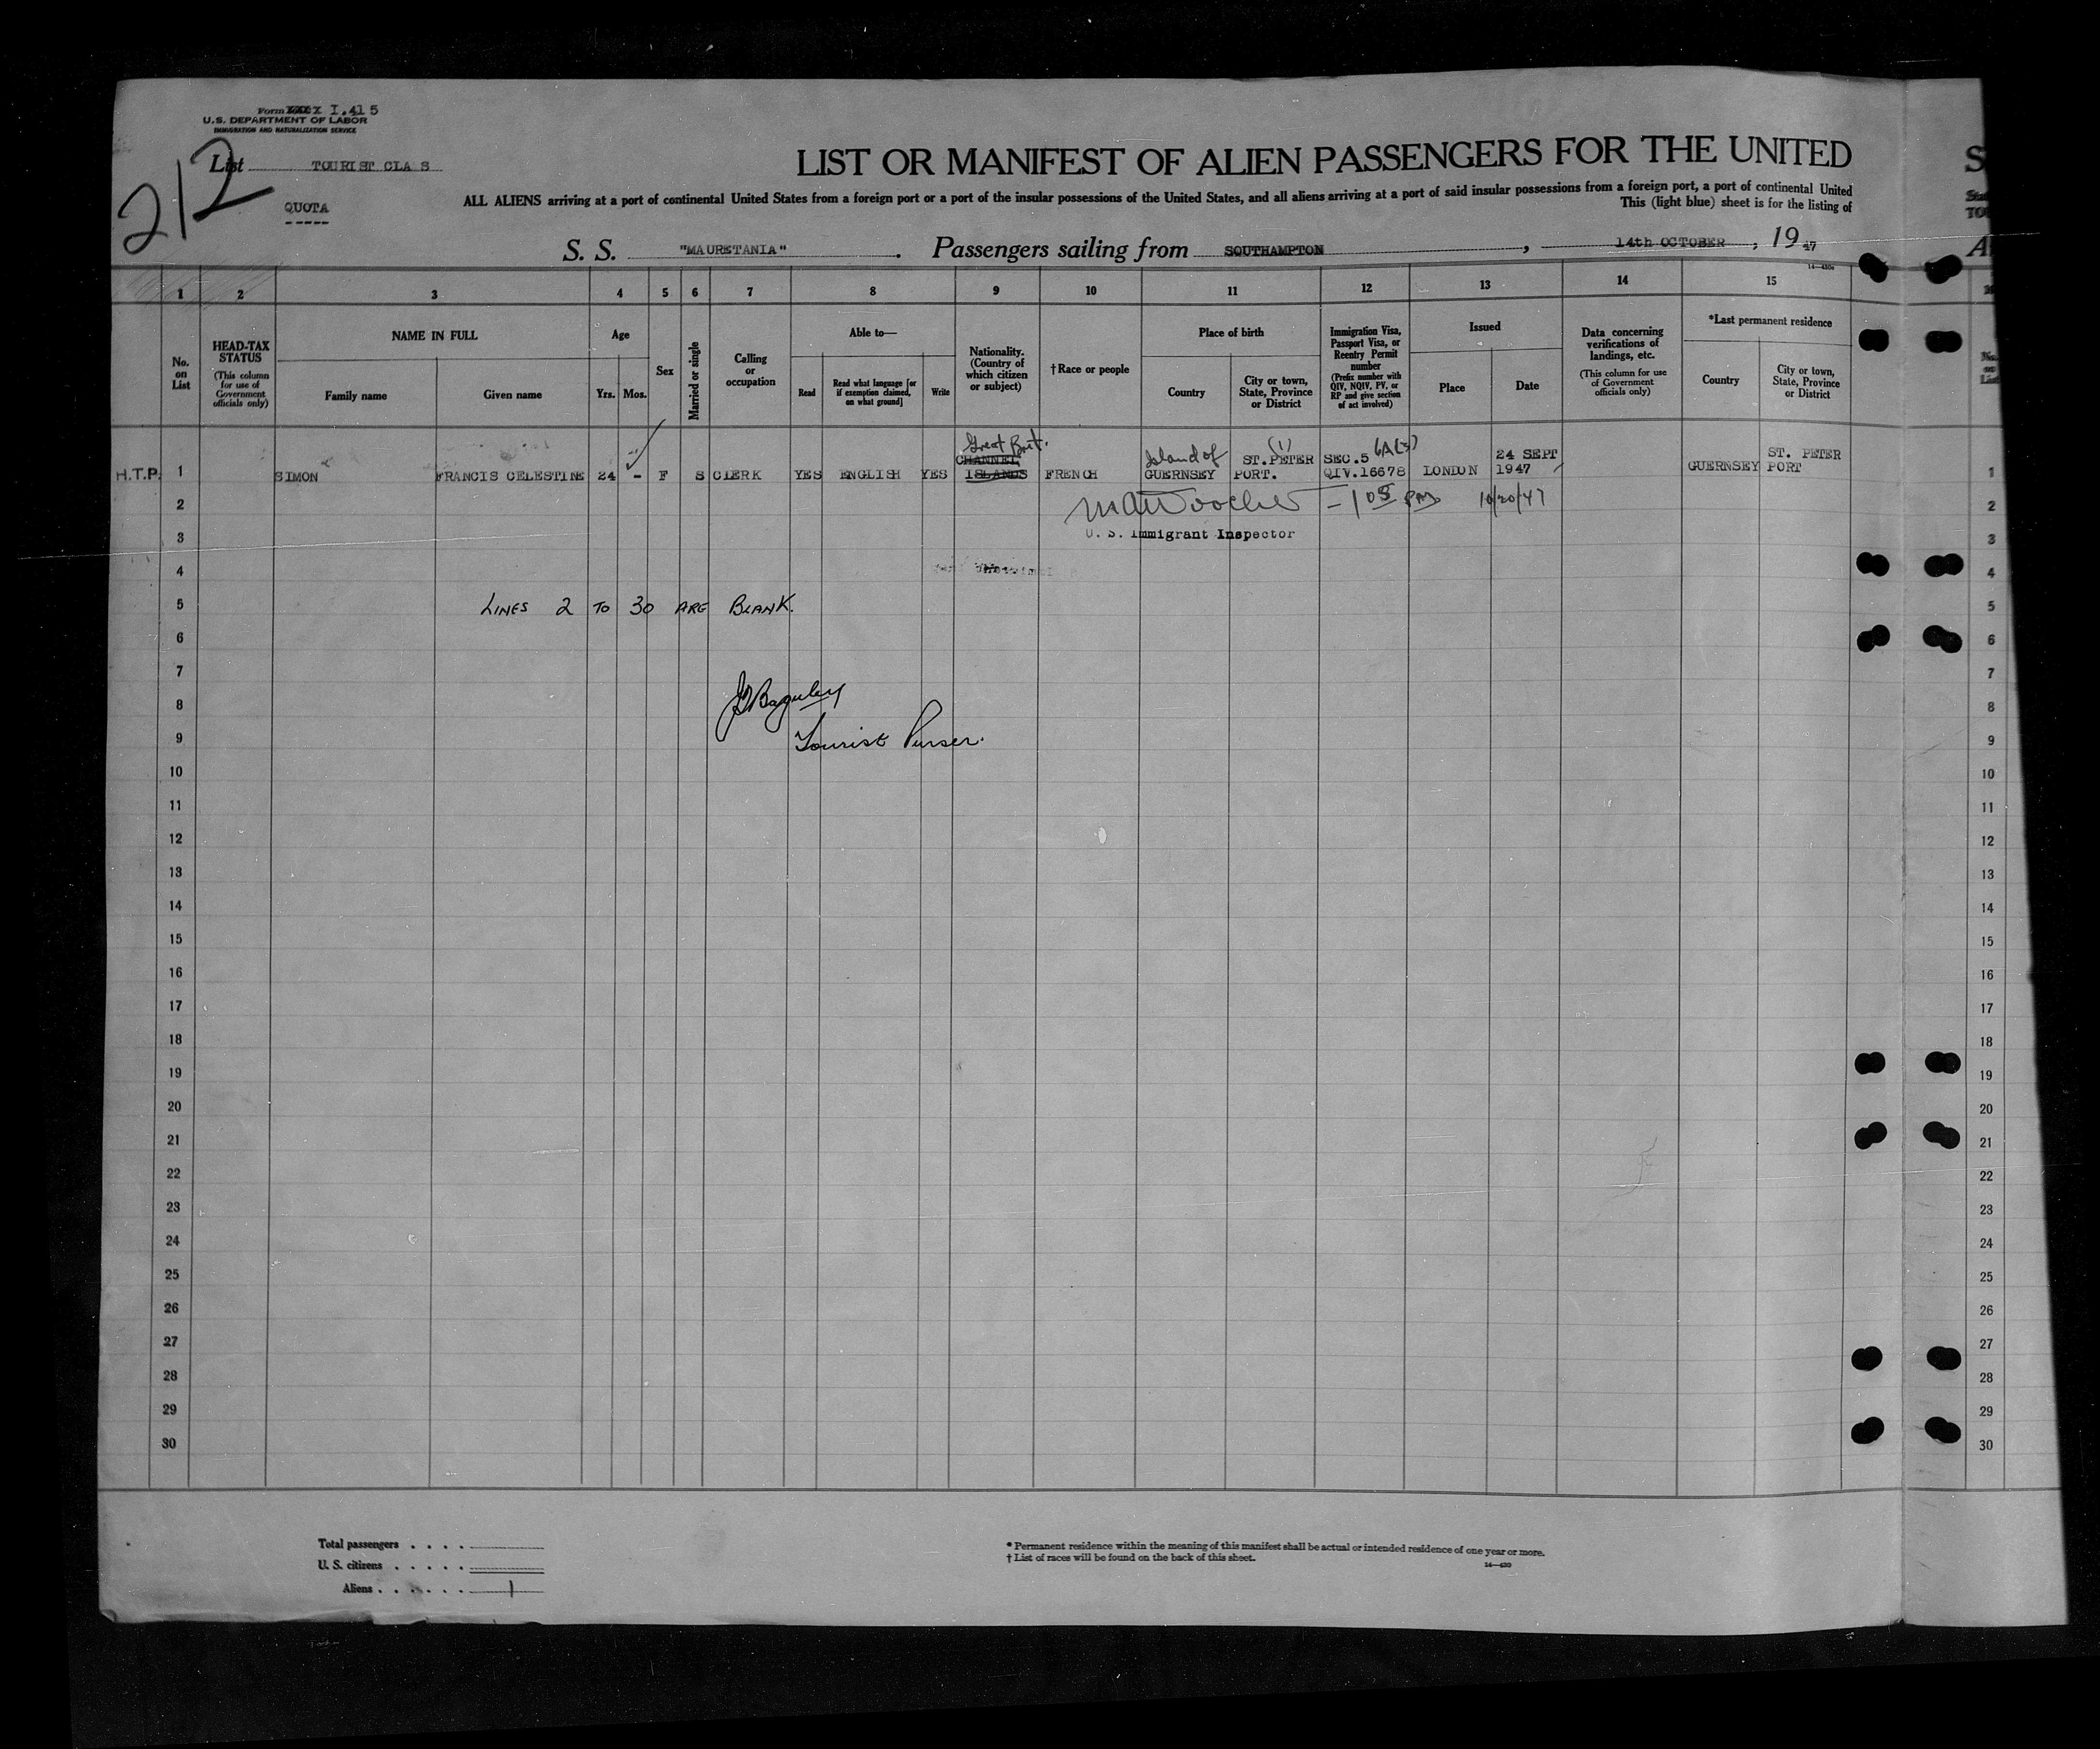 Form I.415
U.S. DEPARTMENT OF LABOR
IMMIGRATION AND NATURALIZATION SERVICE
212
List TOURIST CLA S
QUOTA
LIST OR MANIFEST OF ALIEN PASSENGERS FOR THE UNITED
ALL ALIENS arriving at a port of continental United States from a foreign port or a port of the insular possessions of the United States, and all aliens arriving at a port of said insular possessions from a foreign port, a port of continental United
This (light blue) sheet is for the listing of
S. S. "MAURETANIA". Passengers sailing from SOUTHAMPTON, 14th OCTOBER, 19 47
1 2 3 4 5 6 7 8 9 10 11 12 13 14 15
No. on List
HEAD-TAX STATUS (This column for use of Government officials only)
NAME IN FULL
Family name Given name
Age
Yrs. Mos.
Sex
Married or single
Calling or occupation
Able to—
Read Read what language [or if exemption claimed, on what ground] Write
Nationality. (Country of which citizen or subject)
†Race or people
Place of birth
Country City or town, State, Province or District
Immigration Visa, Passport Visa, or Reentry Permit number (Prefix number with QIV, NQIV, PV, or RP and give section of act involved)
Issued
Place Date
Data concerning verifications of landings, etc. (This column for use of Government officials only)
*Last permanent residence
Country City or town, State, Province or District
Great Brit. Island of (1) 6A(3)
CHANNEL ST. PETER SEC.5 24 SEPT ST. PETER
H.T.P. 1 SIMON FRANCIS CELESTINE 24 - F S CLERK YES ENGLISH YES ISLANDS FRENCH GUERNSEY PORT. QIV.16678 LONDON 1947 GUERNSEY PORT 1
2 10/20/47 2
3 U. S. Immigrant Inspector 3
4 4
5 LINES 2 TO 30 ARE BLANK. 5
6 6
7 7
8 J Baguley 8
9 Tourist Purser. 9
10 10
11 11
12 12
13 13
14 14
15 15
16 16
17 17
18 18
19 19
20 20
21 21
22 22
23 23
24 24
25 25
26 26
27 27
28 28
29 29
30 30
Total passengers . . . .
U. S. citizens . . . . .
Aliens . . . . . . 1
* Permanent residence within the meaning of this manifest shall be actual or intended residence of one year or more.
† List of races will be found on the back of this sheet.
14—430